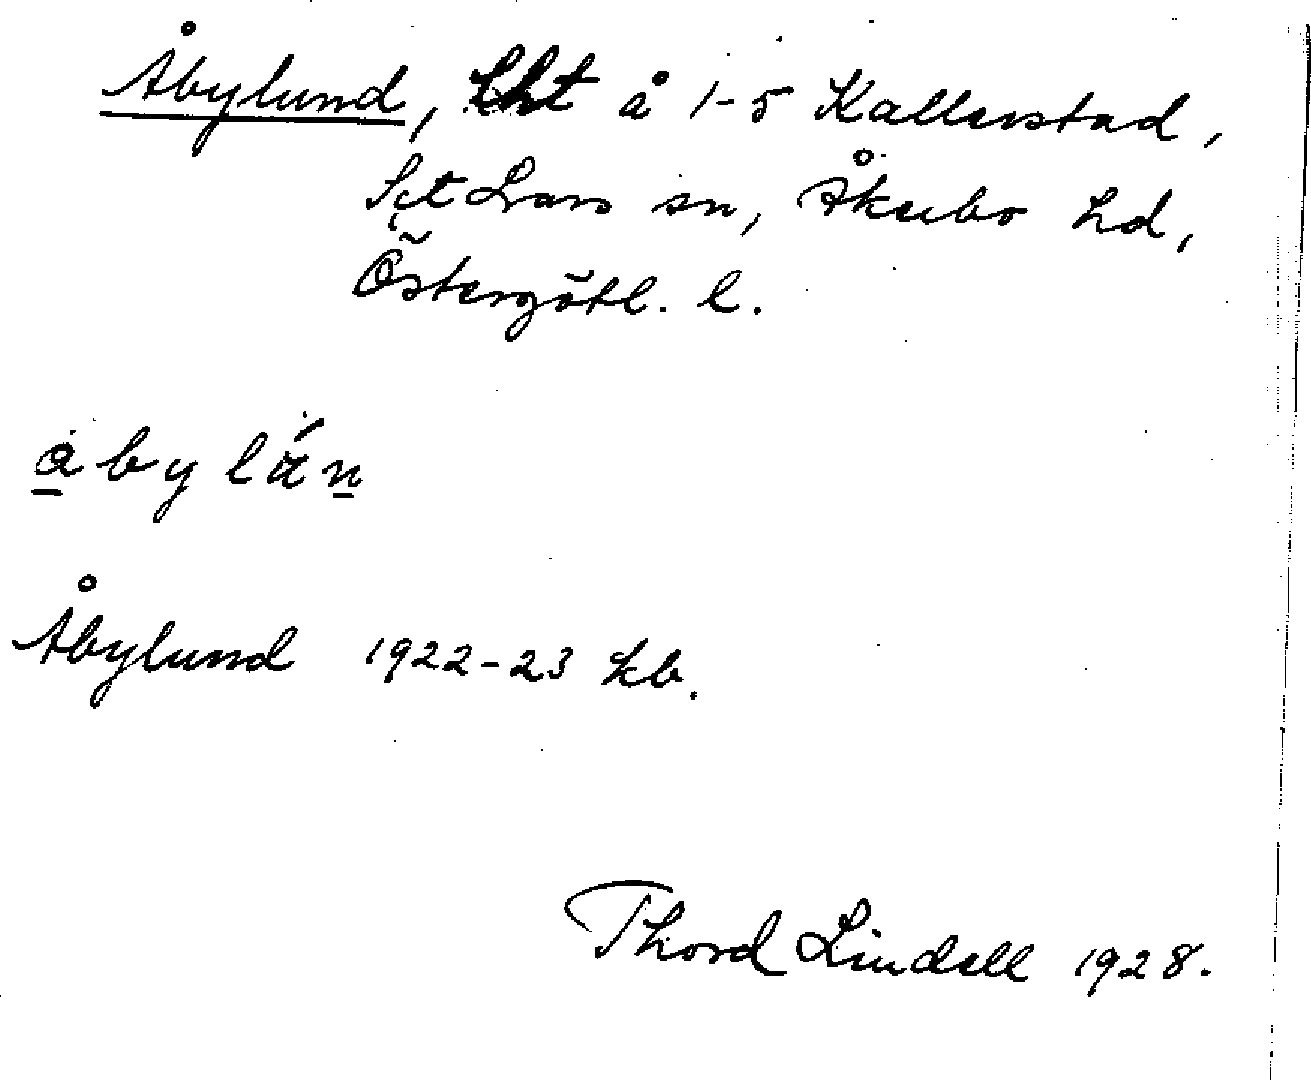 Åbylund, lht å 1-5 Kallerstad,
S:t Lars sn, Åkerbo hd,
Östergötl. l.
Åbylund 1922-23 kb.
Thord Lindell 1928.